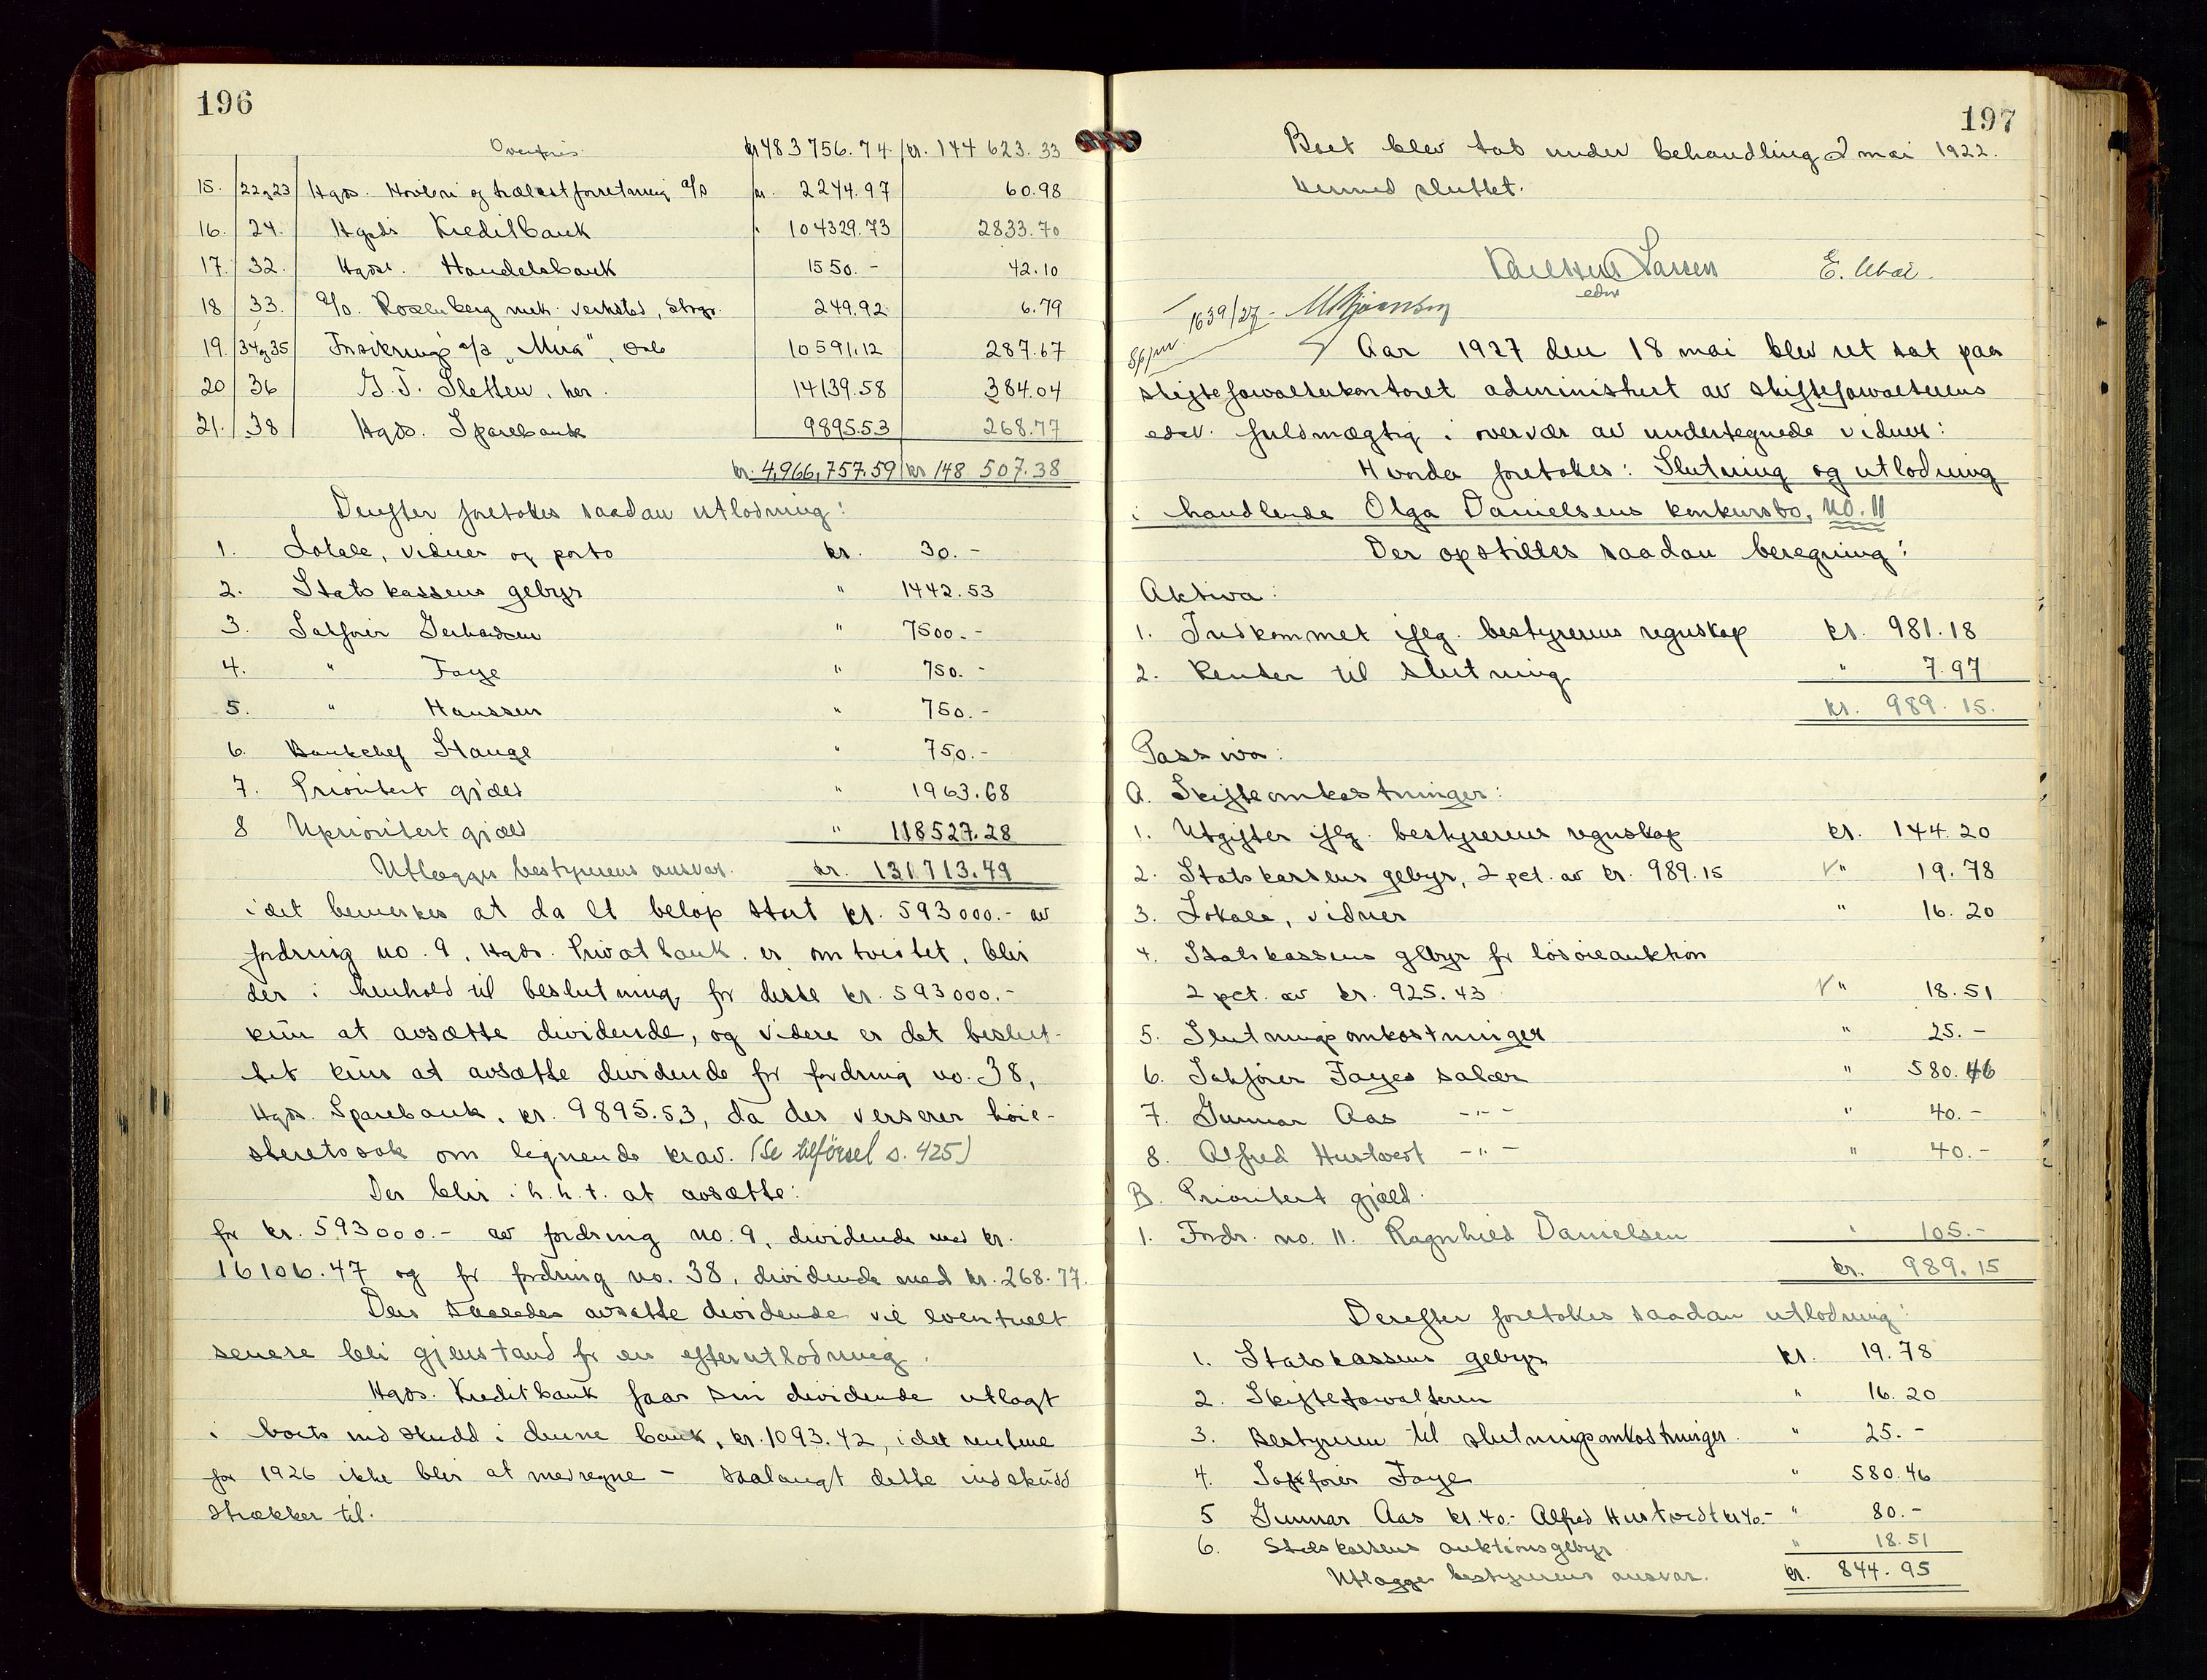 196
Overføres kr 483 756.74 kr. 144 623.33
15. 22og23 Hgds. Hovleri og trælastforretning a/s kr. 2244.97 60.98
16. 24. Hgsds Kreditbank " 104329.73 2833.70
17. 32. Hgds. Handelsbank 1550.- 42.10
18 33. a/s. Rosenberg mek. verksted, Stvgr. 249.92 6.79
19. 34og35 a/s "Mira", Oslo 10591.12 287.67
20 36 G. T. Sletten, her. 14139.58 384.04
21. 38 Hgds. Sparebank 9895.53 268.77
kr. 4,966,757.59 kr 148 507.38
Derefter foretokes saadan utlodning:
1. Lokale, vidner og porto kr. 30.-
2. Statskassens gebyr " 1442.53
3. Sakfører Gerhardsen " 7500.-
4. " Faye " 750.-
5. " Hanssen " 750.-
6. Bankchef Stange " 750.-
7. Prioritert gjæld " 1963.68
8 Uprioritert gjæld " 118527.28
Utlægges bestyrerens ansvar. kr. 131713.49
idet bemerkes at da et beløp stort kr. 593000.- av
fordring no. 9, Hgds. Privatbank er omtvistet, blir
der i henhold til beslutning, for disse kr. 593000.-
kun at avsætte dividende, og videre er det beslut-
tet kun at avsætte dividende for fordring no. 38,
Hgds. Sparebank, kr. 9895.53, da der verserer høie-
steretssak om lignende krav. (Se tilførsel s. 425)
Der blir i h. h. t. at avsætte:
for kr. 593000.- av fordring no. 9, dividende med kr.
16106.47 og for fordring no. 38, dividende med kr. 268.77.
Den saaledes avsatte dividende vil eventuelt
senere bli gjenstand for en efterutlodning.
Hgds. Kreditbank faar sin dividende utlagt
i boets indskudd i denne bank, kr. 1093.42, idet rentene
for 1926 ikke blir at medregne - saalangt dette indskudd
strækker til.
197
Boet blev tat under behandling 2 mai 1922.
Hermed sluttet.
Larsen E.
edsv
1639/27
Aar 1927 den 18 mai blev ret sat paa
skifteforvalterkontoret administrert av skifteforvalterens
edsv. fuldmægtig i overvær av undertegnede vidner:
Hvorda foretokes: Slutning og utlodning
i handlende Olga Danielsens konkursbo, no. 11
Der opstilles saadan beregning:
Aktiva:
1. Indkommet iflg. bestyrerens regnskap kr. 981.18
2. Renter til slutning " 7.97
kr. 989.15.
Passiva:
A. Skifteomkostninger:
1. Utgifter iflg. bestyrerens regnskap kr. 144.20
2. Statskassens gebyr, 2 pct. av kr. 989.15 " 19.78
3. Lokale, vidner " 16.20
4. Statskassens gebyr for løsøreauktion
2 pct. av kr. 925.43 " 18.51
5. Slutningsomkostninger " 25.-
6. Sakfører Fayes salær " 580.46
7. Gunnar Aas -"- " 40.-
8. Alfred Hustvedt -"- " 40.-
B. Prioritert gjæld.
1. Fordr. no. 11. Ragnhild Danielsen " 105.-
kr. 989.15
Derefter foretokes saadan utlodning:
1. Statskassens gebyr kr. 19.78
2. Skifteforvalteren " 16.20
3. Bestyreren til slutningsomkostninger. " 25.-
4. Sakfører Faye " 580.46
5 Gunnar Aas kr. 40.- Alfred Hustvedt kr 40.- " 80.-
6. Statskassens auktionsgebyr " 18.51
Utlægges bestyrerens ansvar. kr. 844.95